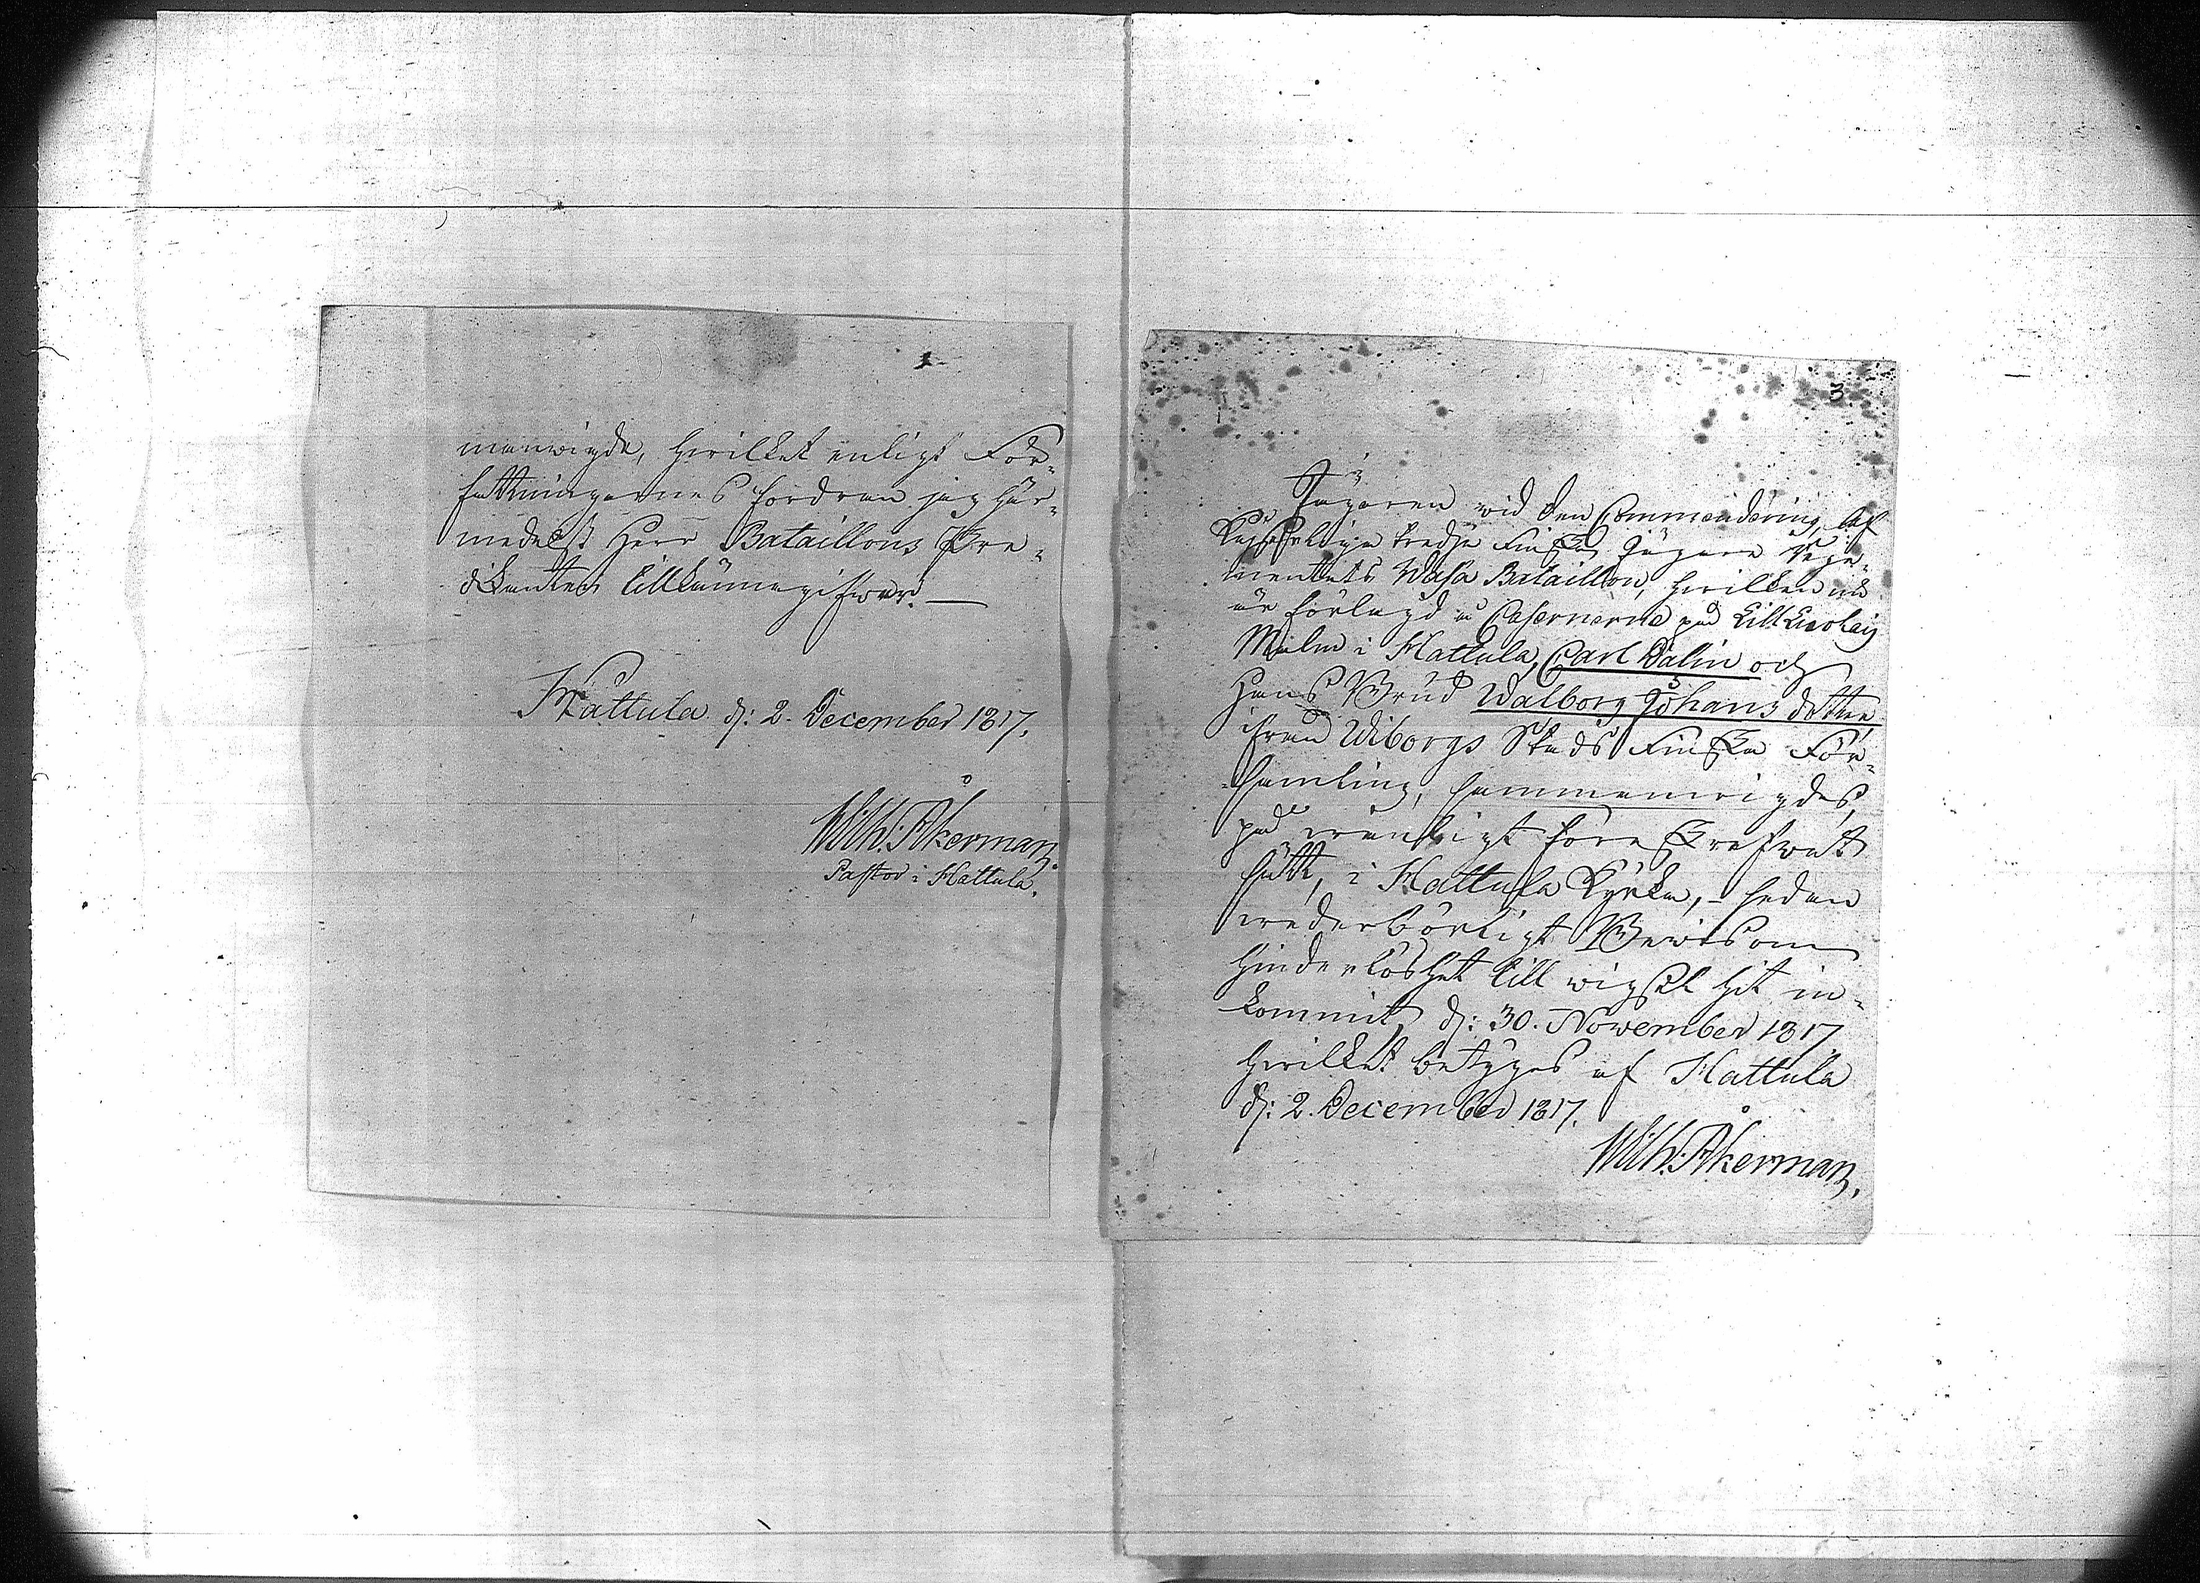 manwigde, hwilket enligt För-
fattningarnes fordran jag här-
medelst Herr Bataillons Pre-
dikanten tillkännagifwer. —
Hattula d: 2. December 1817.
Wilh: Åkerman.
Pastor i Hattula.
3.
Jägaren wid den Commendering af
Kejserliga tredje Finska Jägare Rege-
mentets Wasa Bataillon, hwilken nu
är förlagd i Casernerne på
Malm i Hattula, Carl Dalin och
Hans Brud Walborg Johans dotter
ifrån Wiborgs Stads Finska För-
samling, sammanwigdes,
på wanligt föreskrefwet
sätt, i Hattula Kyrka, - sedan
wederbörligt Bewis om
hinderlöshet till wigsel hit in-
kommit, d: 30. November 1817.
hwilket betygas af Hattula
d: 2. December 1817.
Wilh: Åkerman.